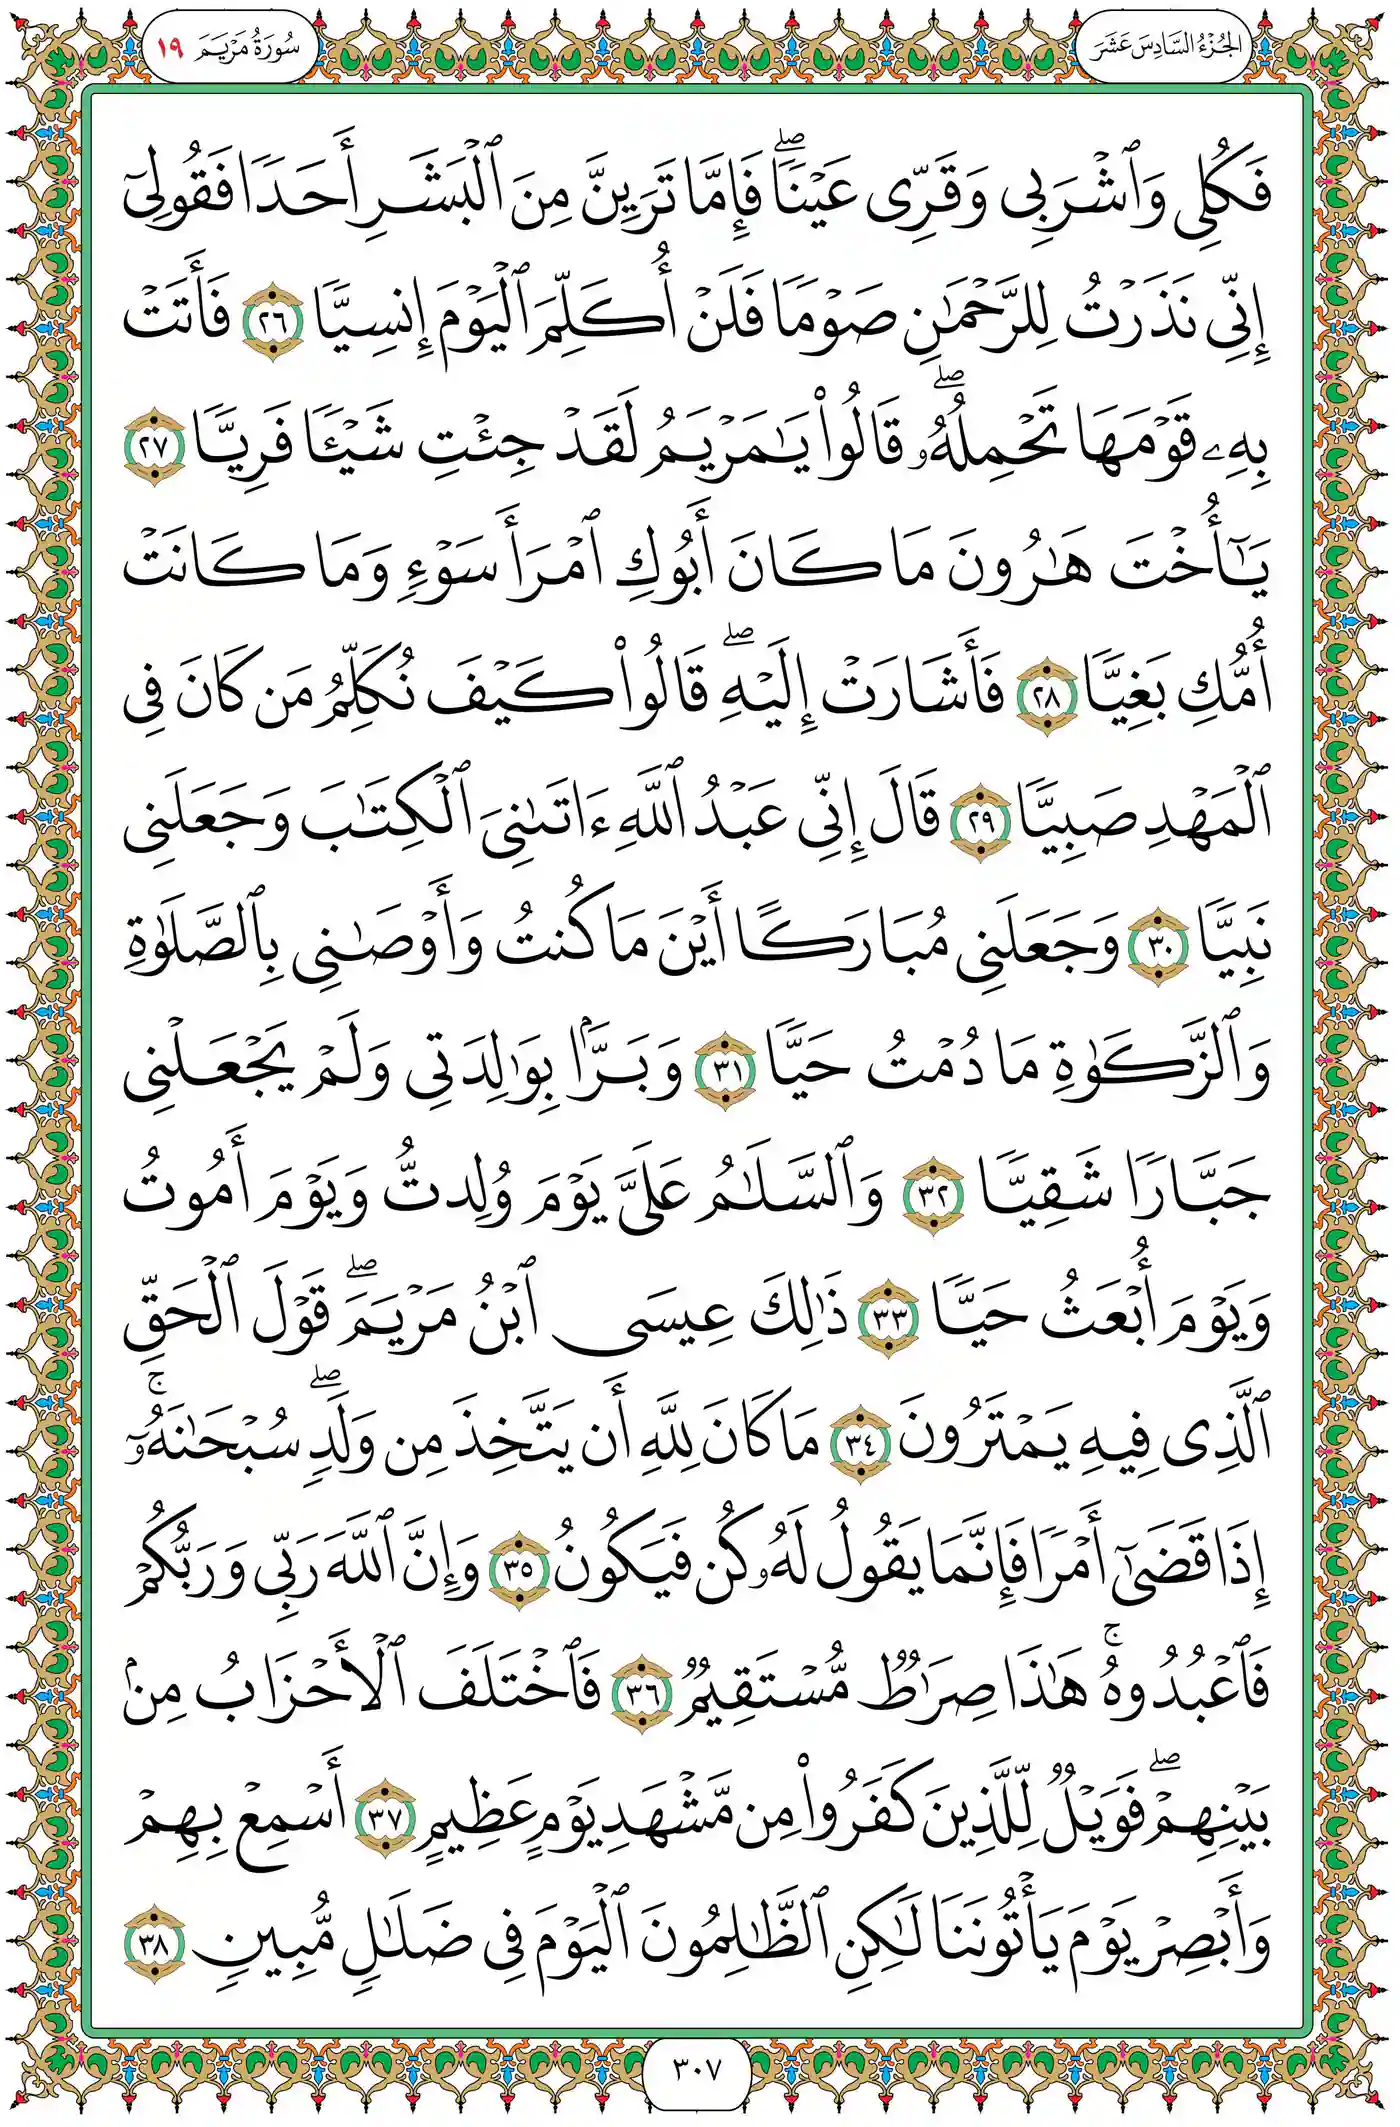 سُورَةُ مَرۡيَمَ ١٩
الجُزْءُ السَّادِسَ عَشَرَ
فَكُلِي وَٱشۡرَبِي وَقَرِّي عَيۡنٗاۖ فَإِمَّا تَرَيِنَّ مِنَ ٱلۡبَشَرِ أَحَدٗا فَقُولِيٓ
إِنِّي نَذَرۡتُ لِلرَّحۡمَٰنِ صَوۡمٗا فَلَنۡ أُكَلِّمَ ٱلۡيَوۡمَ إِنسِيّٗا ٢٦ فَأَتَتۡ
بِهِۦ قَوۡمَهَا تَحۡمِلُهُۥۖ قَالُواْ يَٰمَرۡيَمُ لَقَدۡ جِئۡتِ شَيۡـٔٗا فَرِيّٗا ٢٧
يَٰٓأُخۡتَ هَٰرُونَ مَا كَانَ أَبُوكِ ٱمۡرَأَ سَوۡءٖ وَمَا كَانَتۡ
أُمُّكِ بَغِيّٗا ٢٨ فَأَشَارَتۡ إِلَيۡهِۖ قَالُواْ كَيۡفَ نُكَلِّمُ مَن كَانَ فِي
ٱلۡمَهۡدِ صَبِيّٗا ٢٩ قَالَ إِنِّي عَبۡدُ ٱللَّهِ ءَاتَىٰنِيَ ٱلۡكِتَٰبَ وَجَعَلَنِي
نَبِيّٗا ٣٠ وَجَعَلَنِي مُبَارَكًا أَيۡنَ مَا كُنتُ وَأَوۡصَٰنِي بِٱلصَّلَوٰةِ
وَٱلزَّكَوٰةِ مَا دُمۡتُ حَيّٗا ٣١ وَبَرَّۢا بِوَٰلِدَتِي وَلَمۡ يَجۡعَلۡنِي
جَبَّارٗا شَقِيّٗا ٣٢ وَٱلسَّلَٰمُ عَلَيَّ يَوۡمَ وُلِدتُّ وَيَوۡمَ أَمُوتُ
وَيَوۡمَ أُبۡعَثُ حَيّٗا ٣٣ ذَٰلِكَ عِيسَى ٱبۡنُ مَرۡيَمَۖ قَوۡلَ ٱلۡحَقِّ
ٱلَّذِي فِيهِ يَمۡتَرُونَ ٣٤ مَا كَانَ لِلَّهِ أَن يَتَّخِذَ مِن وَلَدٖۖ سُبۡحَٰنَهُۥٓۚ
إِذَا قَضَىٰٓ أَمۡرٗا فَإِنَّمَا يَقُولُ لَهُۥ كُن فَيَكُونُ ٣٥ وَإِنَّ ٱللَّهَ رَبِّي وَرَبُّكُمۡ
فَٱعۡبُدُوهُۚ هَٰذَا صِرَٰطٞ مُّسۡتَقِيمٞ ٣٦ فَٱخۡتَلَفَ ٱلۡأَحۡزَابُ مِنۢ
بَيۡنِهِمۡۖ فَوَيۡلٞ لِّلَّذِينَ كَفَرُواْ مِن مَّشۡهَدِ يَوۡمٍ عَظِيمٍ ٣٧ أَسۡمِعۡ بِهِمۡ
وَأَبۡصِرۡ يَوۡمَ يَأۡتُونَنَا لَٰكِنِ ٱلظَّٰلِمُونَ ٱلۡيَوۡمَ فِي ضَلَٰلٖ مُّبِينٖ ٣٨
٣٠٧